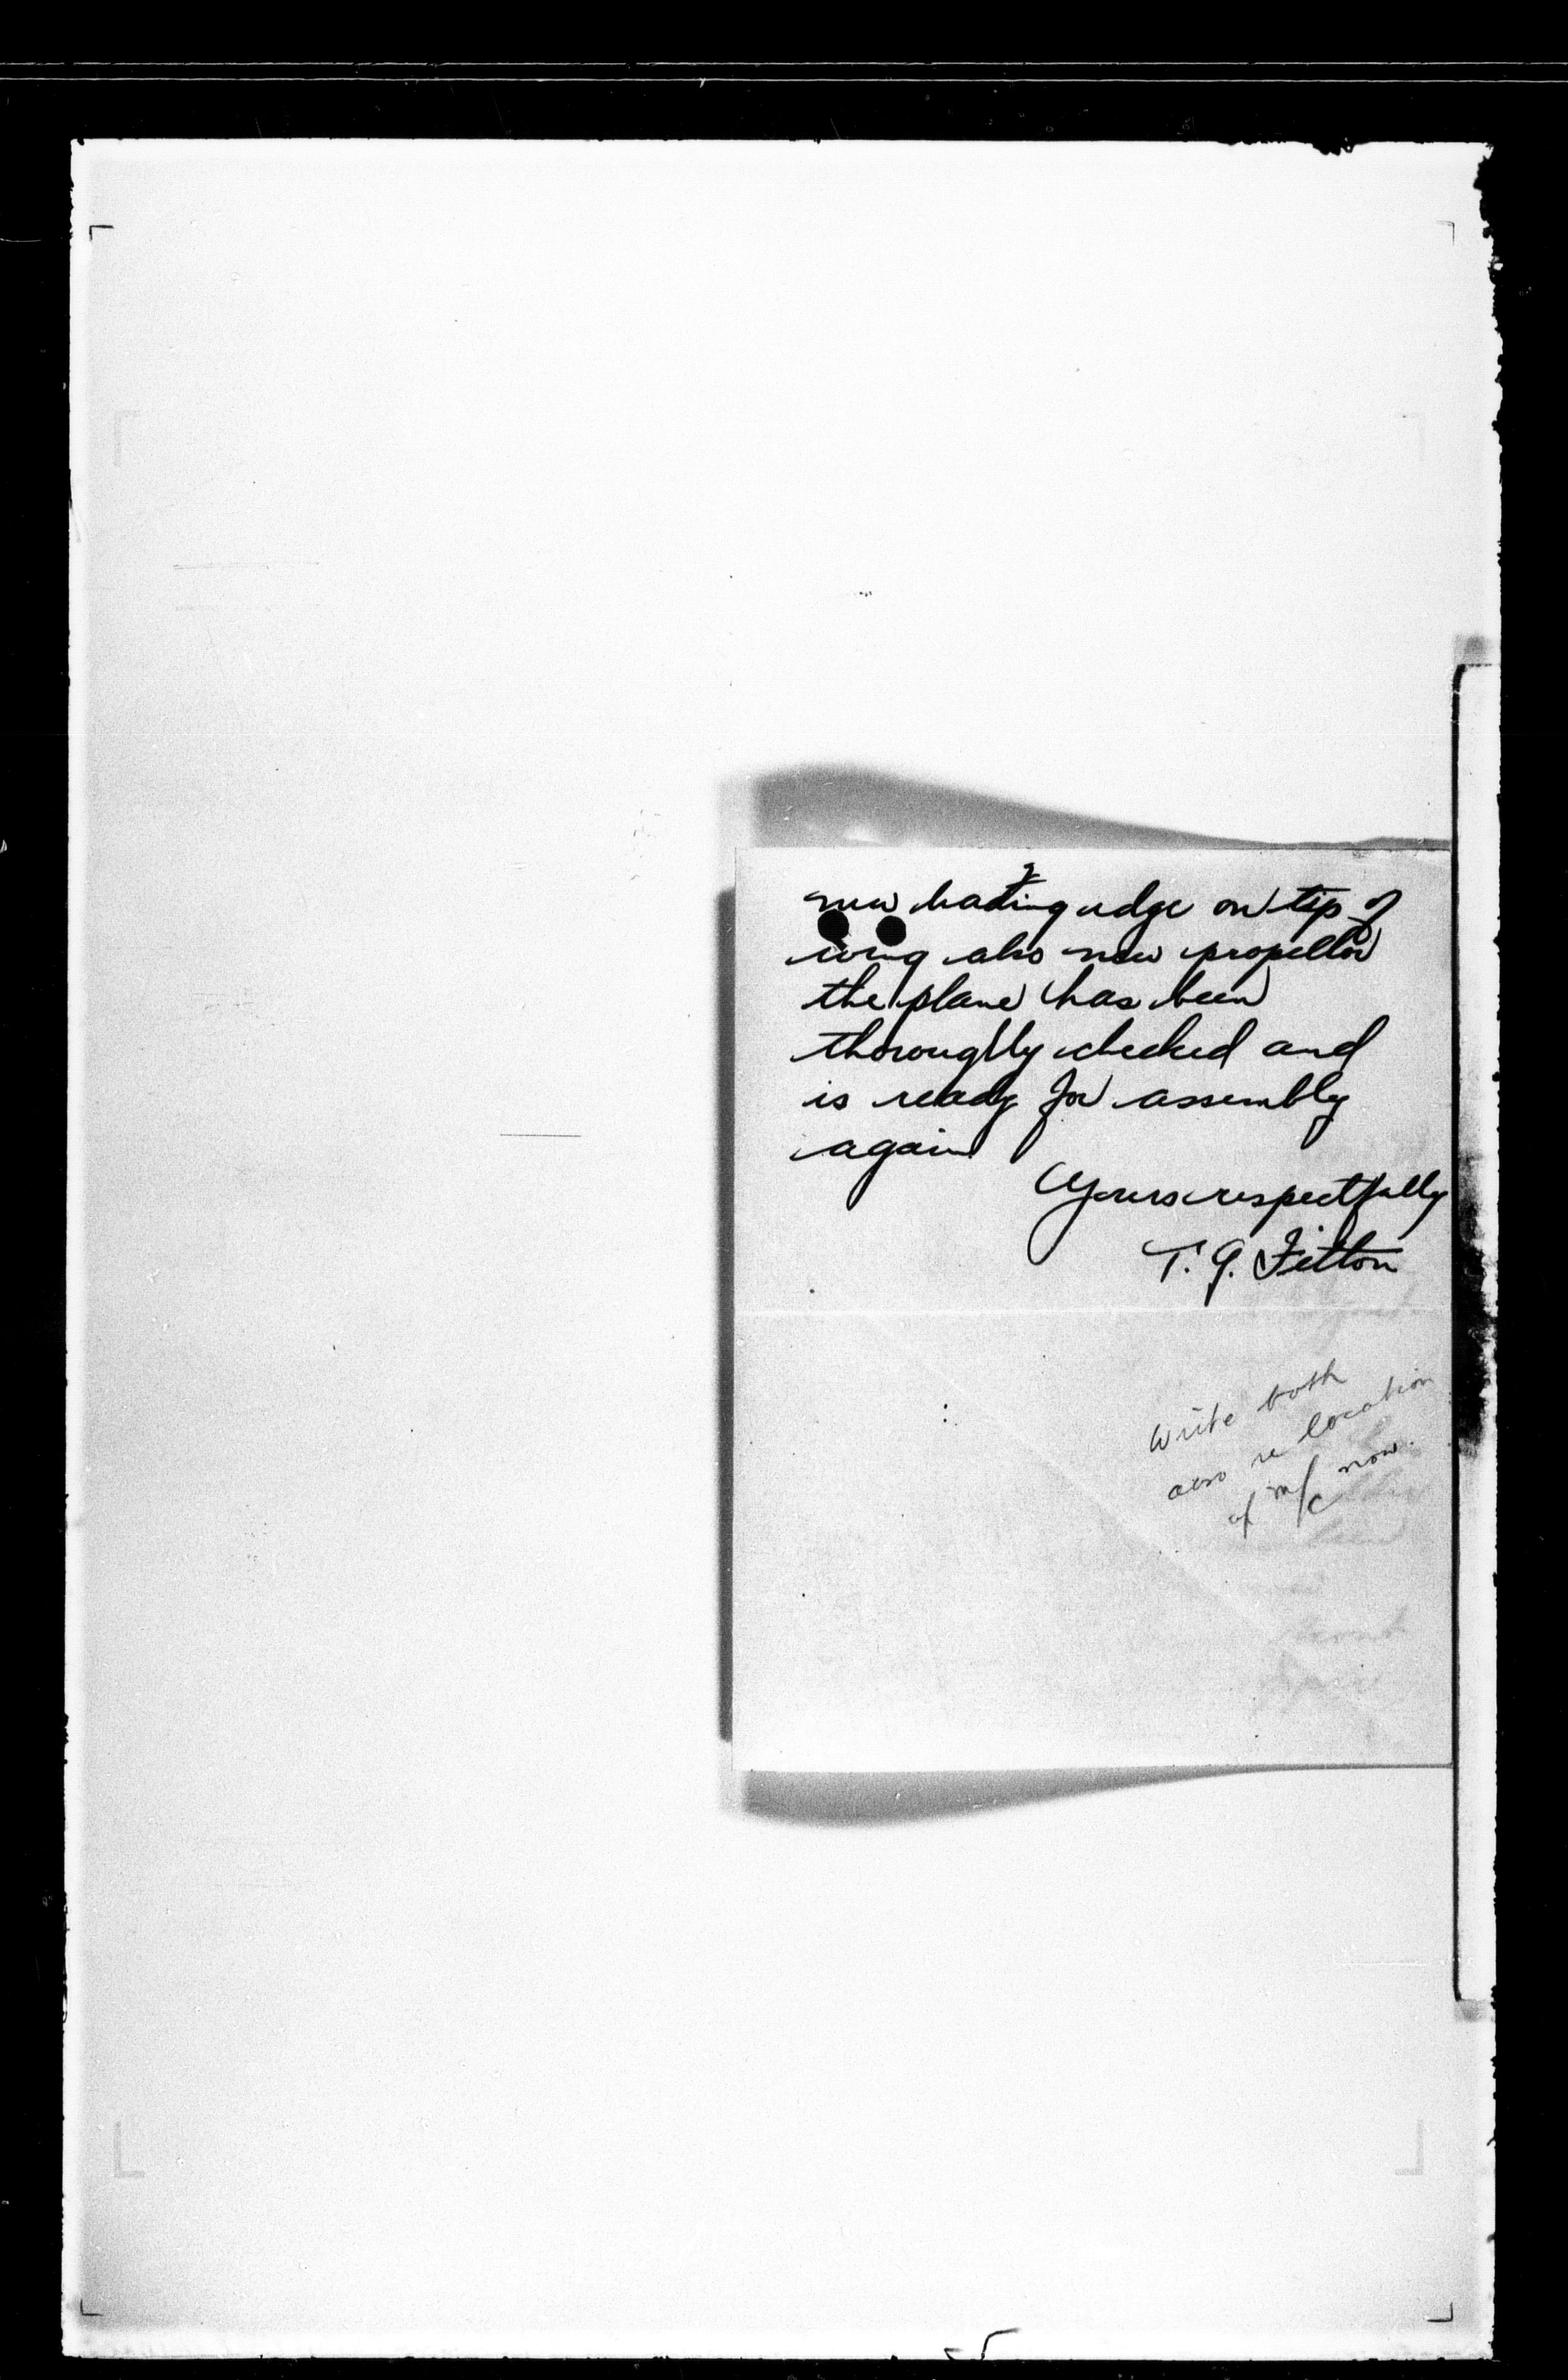 2
new leading edge on tip of
wing also new propellor
the plane has been
thoroughly checked and
is ready for assembly
again
Yours respectfully
T. G. Fitton
Write both
also re location
of m/c now.